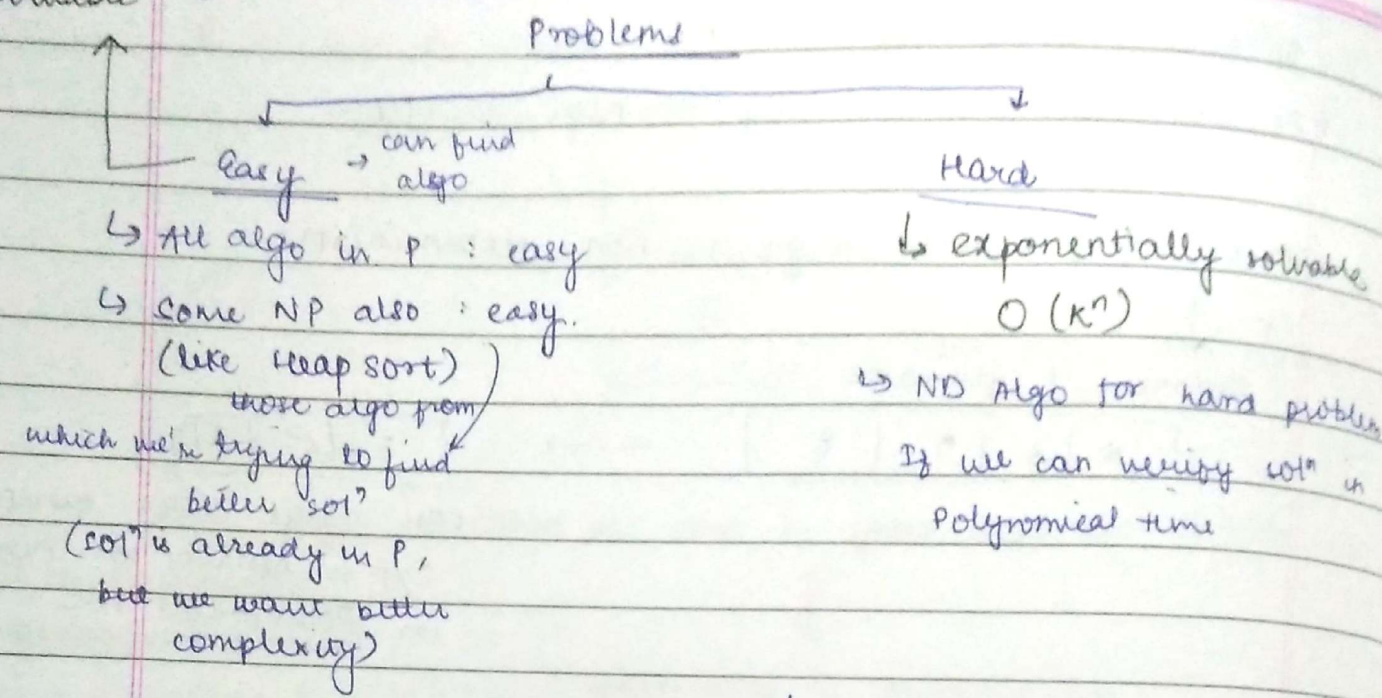 Problems
Easy → can find
algo
↳ All algo in P : easy
↳ Some NP also : easy.
(like Heap sort)
those algo from
which we're trying to find
better solⁿ
(solⁿ is already in P,
but we want better
complexity)
Hard
↳ exponentially solvable
O (Kⁿ)
↳ ND Algo for hard problem
If we can verify solⁿ in
Polynomical time